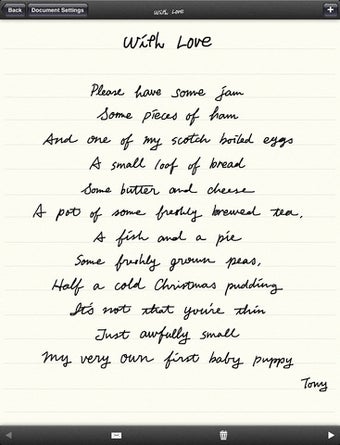 Back Document Settings With Love +
With Love
Please have some jam
Some pieces of ham
And one of my scotch boiled eggs
A small loaf of bread
Some butter and cheese
A pot of some freshly brewed tea.
A fish and a pie
Some freshly grown peas,
Half a cold Christmas pudding
It's not that you're thin
Just awfully small
My very own first baby puppy
Tony